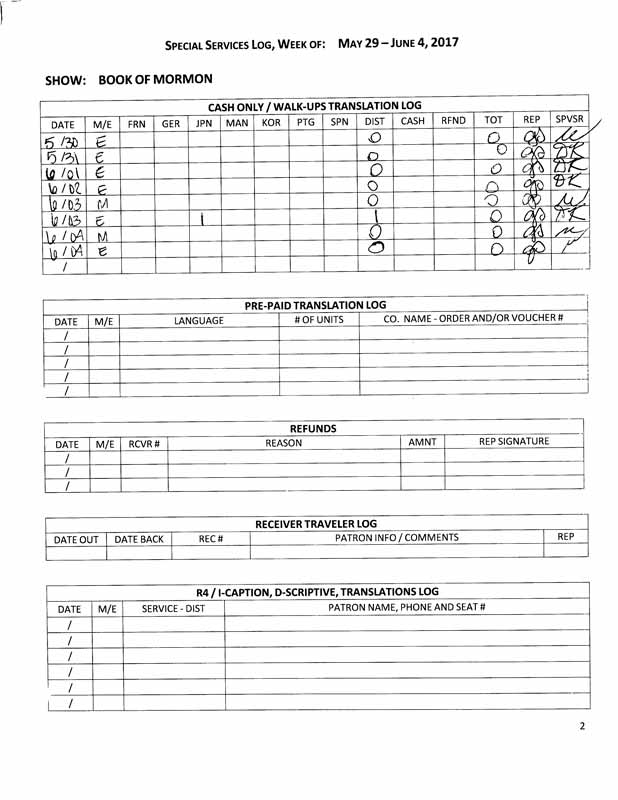 SPECIAL SERVICES LOG, WEEK OF: MAY 29 – JUNE 4, 2017
SHOW: BOOK OF MORMON
CASH ONLY / WALK-UPS TRANSLATION LOG
DATE M/E FRN GER JPN MAN KOR PTG SPN DIST CASH RFND TOT REP SPVSR
5/30 E 0 0
5/31 E 0 0 DK
6/01 E 0 0 DK
6/02 E 0 0 DK
6/03 M 0 0
6/03 E 1 1 0 DK
6/04 M 0 0
6/04 E 0 0
/
PRE-PAID TRANSLATION LOG
DATE M/E LANGUAGE # OF UNITS CO. NAME - ORDER AND/OR VOUCHER #
/
/
/
/
/
REFUNDS
DATE M/E RCVR # REASON AMNT REP SIGNATURE
/
/
/
RECEIVER TRAVELER LOG
DATE OUT DATE BACK REC # PATRON INFO / COMMENTS REP
R4 / I-CAPTION, D-SCRIPTIVE, TRANSLATIONS LOG
DATE M/E SERVICE - DIST PATRON NAME, PHONE AND SEAT #
/
/
/
/
/
/
2